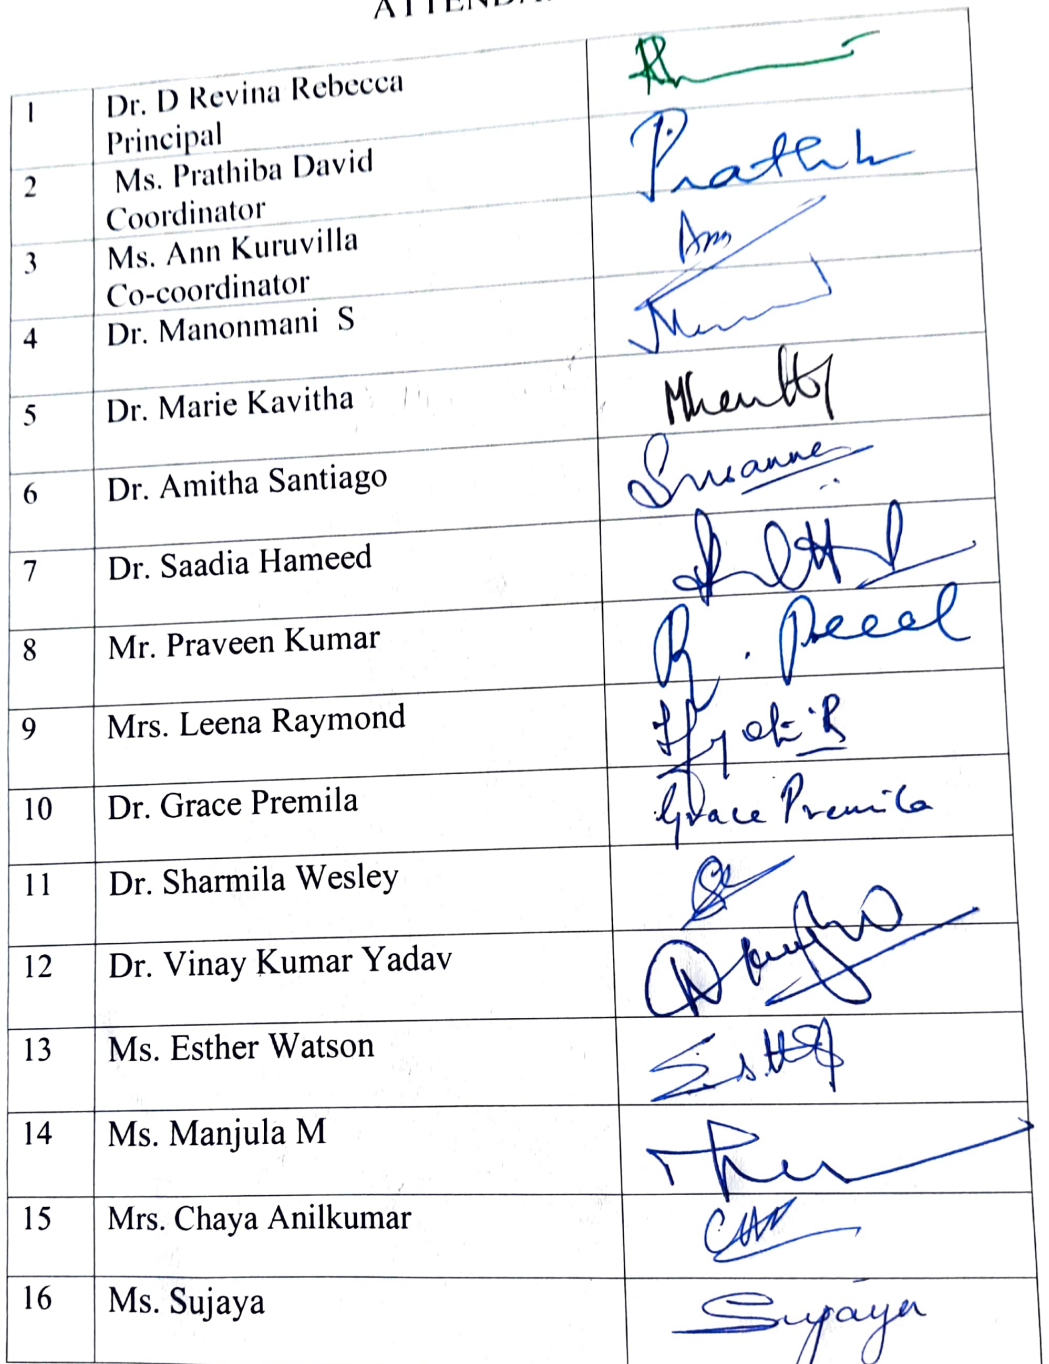 1 Dr. D Revina Rebecca
Principal
2 Ms. Prathiba David
Coordinator
3 Ms. Ann Kuruvilla
Co-coordinator
Ann
4 Dr. Manonmani S
5 Dr. Marie Kavitha
6 Dr. Amitha Santiago
Susanne
7 Dr. Saadia Hameed
8 Mr. Praveen Kumar
9 Mrs. Leena Raymond
10 Dr. Grace Premila Grace Premila
11 Dr. Sharmila Wesley
12 Dr. Vinay Kumar Yadav
13 Ms. Esther Watson
14 Ms. Manjula M
15 Mrs. Chaya Anilkumar
16 Ms. Sujaya Sujaya